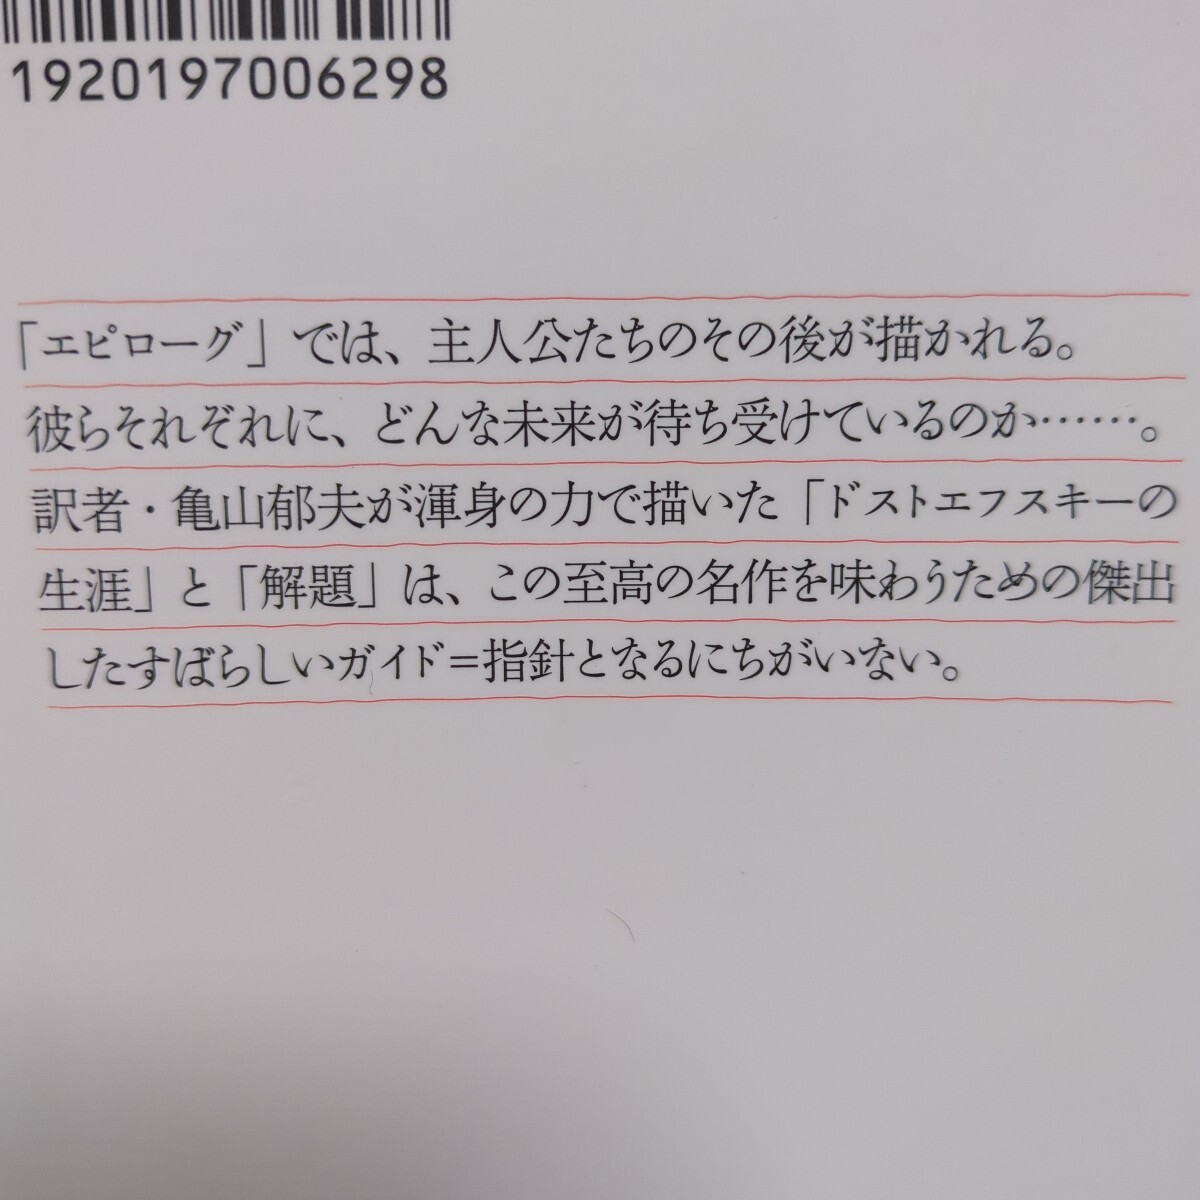 1920197006298
「エピローグ」では、主人公たちのその後が描かれる。
彼らそれぞれに、どんな未来が待ち受けているのか……。
訳者・亀山郁夫が渾身の力で描いた「ドストエフスキーの
生涯」と「解題」は、この至高の名作を味わうための傑出
したすばらしいガイド＝指針となるにちがいない。